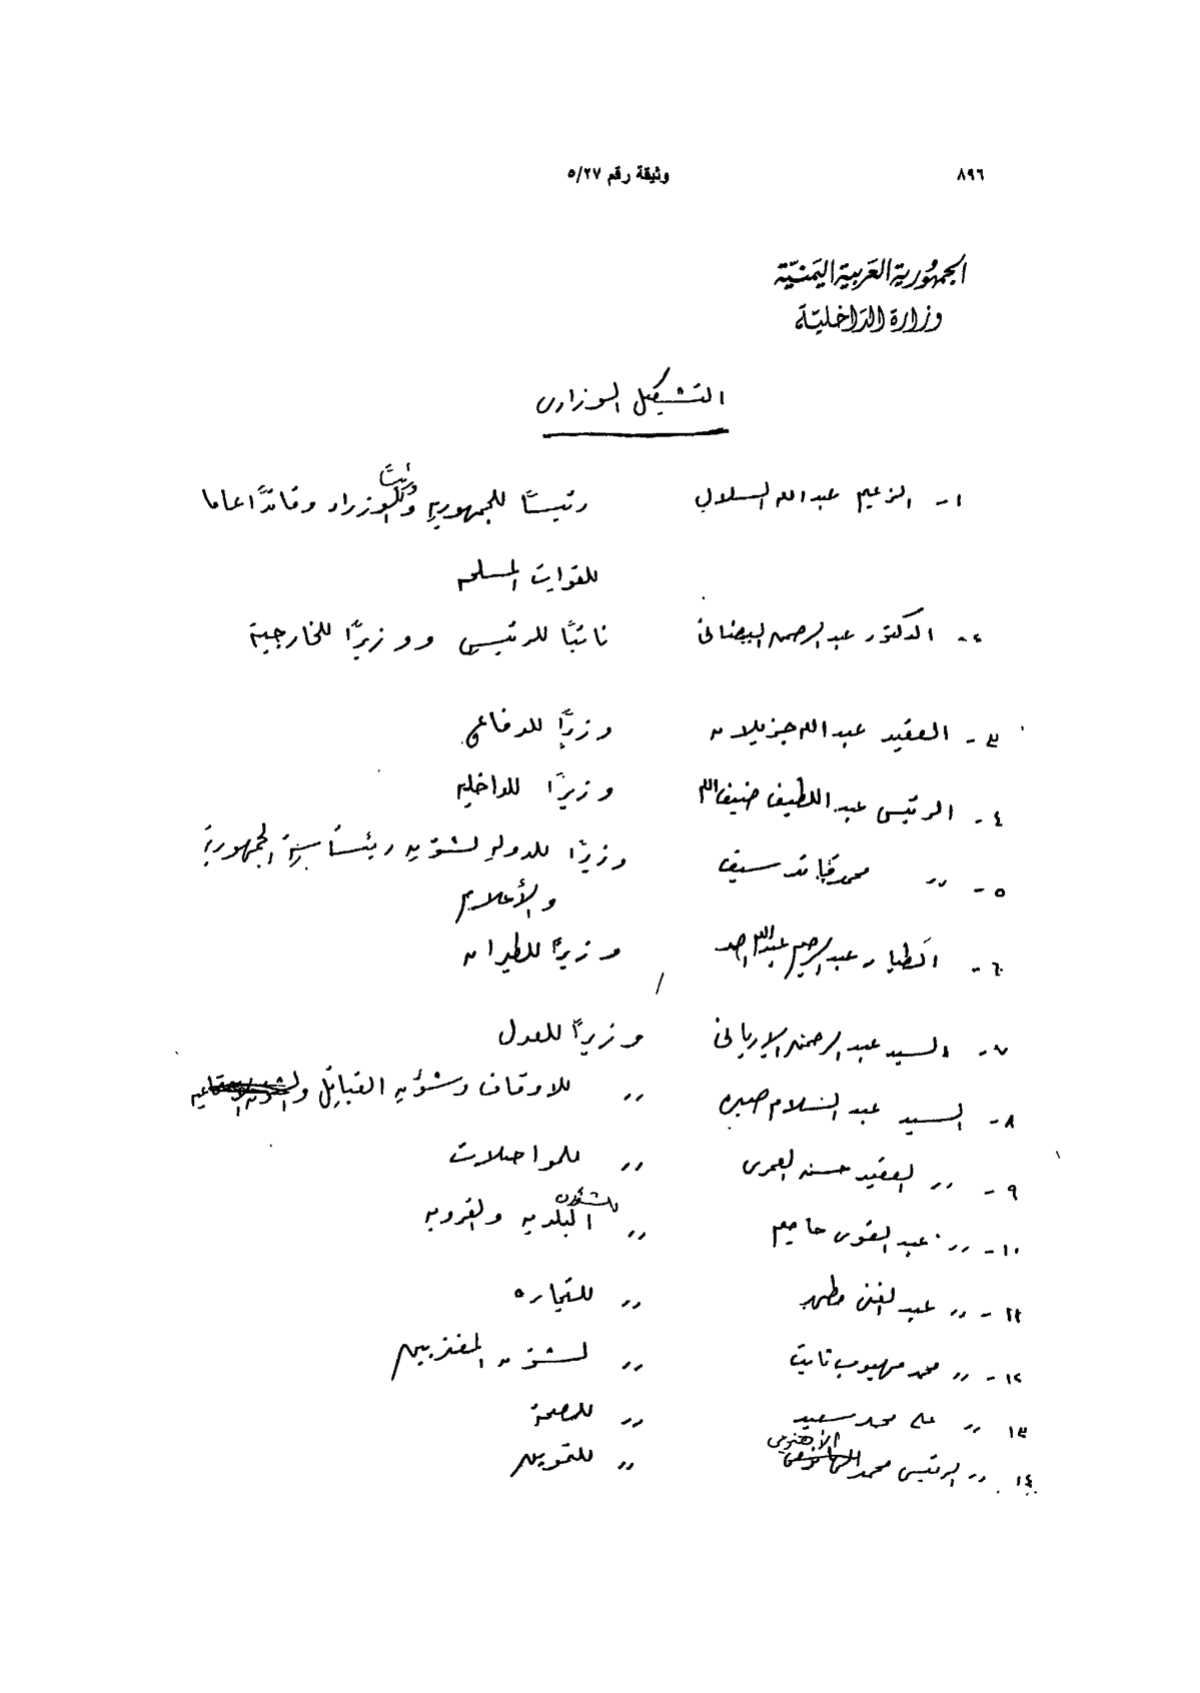 ٨٩٦ وثيقة رقم ٥/٢٧
الجمهورية العربية اليمنية
وزارة الداخلية
التشكيل الوزارى
١- الزعيم عبدالله السلال رئيسًا للجمهوريه ورئيسًا للوزراء وقائدًا عاما
للقوات المسلحه
٢- الدكتور عبدالرحمن البيضانى نائبًا للرئيس ووزيرًا للخارجية
٣- العقيد عبدالله جزيلان وزيرًا للدفاع
٤- الرئيس عبداللطيف ضيف الله وزيرًا للداخليه
٥- 〃 محمد قائد سيف وزيرًا للدوله لشئون رئاسة الجمهورية
والأعلام
٦- الطيار عبدالرحيم عبدالله وزيرًا للطيران
٧- السيد عبدالرحمن الإريانى وزيرًا للعدل
٨- السيد عبدالسلام صبره 〃 للاوقاف وشؤن القبائل
٩- 〃 العقيد حسن العمرى 〃 للمواصلات
١٠- 〃 عبدالقوى حاميم 〃 للشئون البلديه والقرويه
١١- 〃 عبدالغنى مطهر 〃 للتجاره
١٢- 〃 محمد مهيوب ثابت 〃 لشئون المغتربين
١٣ 〃 على محمد سعيد 〃 للصحة
١٤ 〃 الرئيس محمد الأهنومي 〃 للتموين